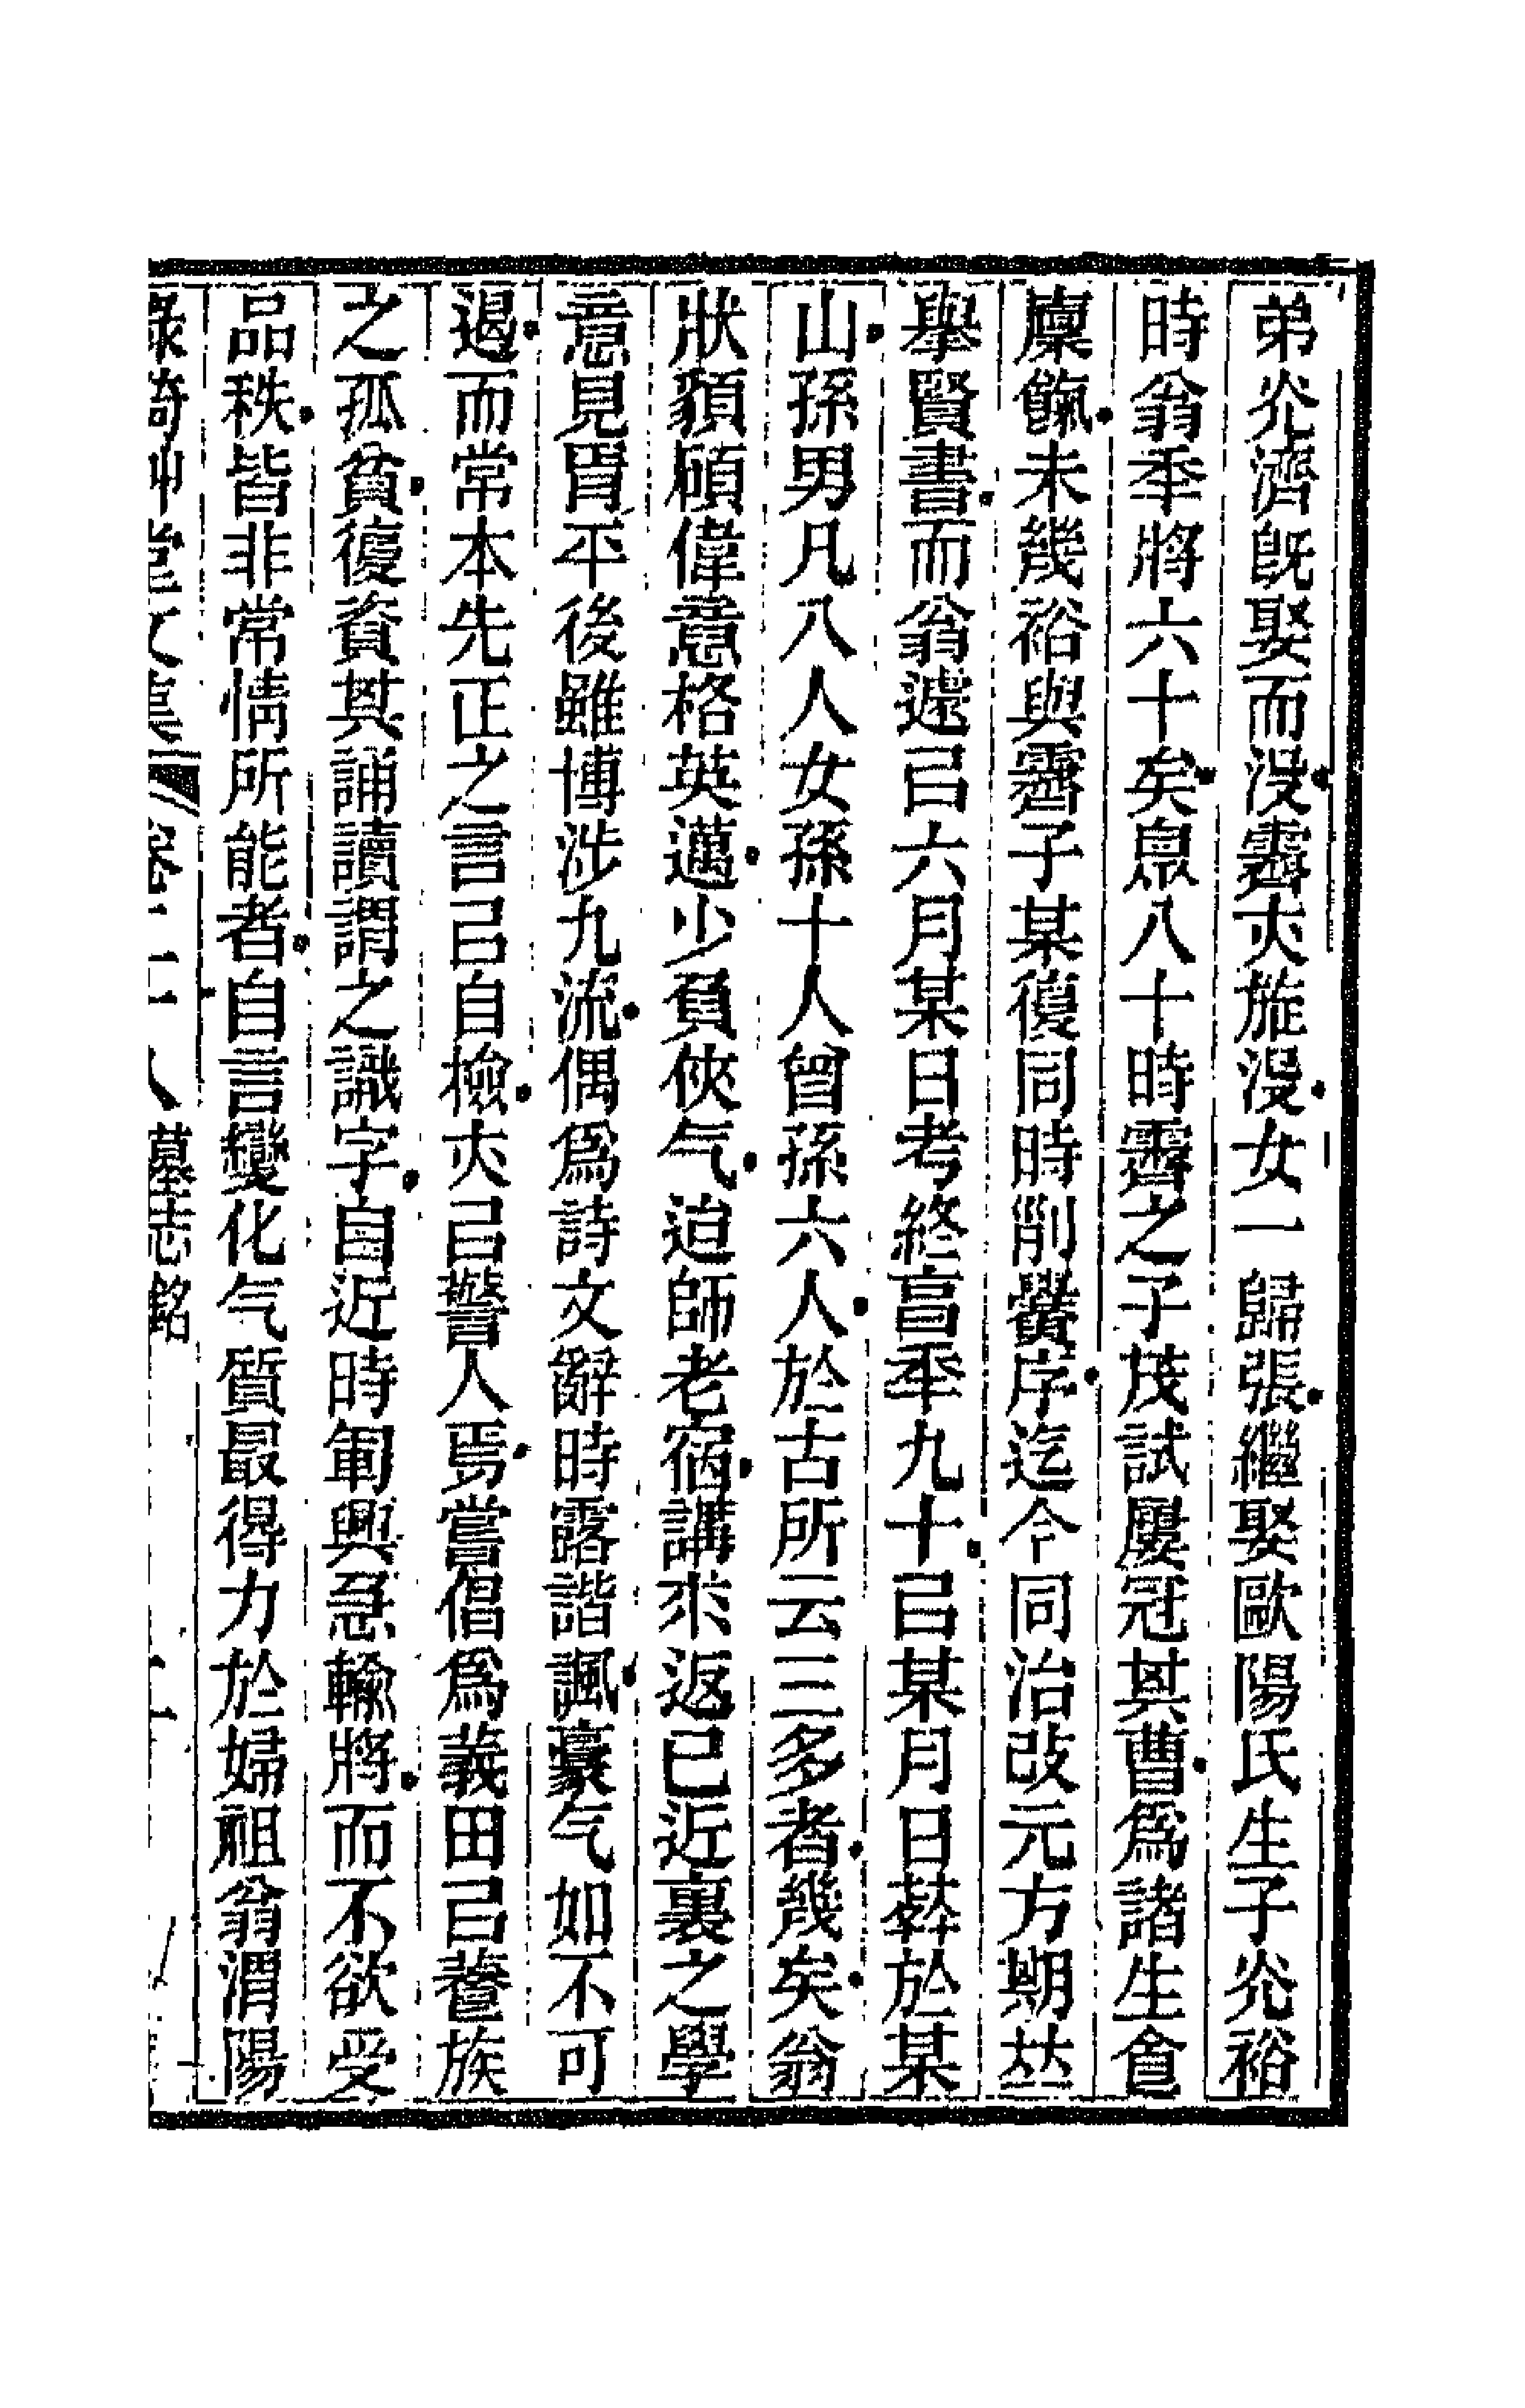 弟灮濟旣娶而没霽亦旋没女一歸張繼娶歐陽氏生子灮裕
時翁秊將六十矣臮八十時霽之子茂試屢冠其曹爲諸生食
廩餼未幾裕與霽子某復同時削黌序迄今同治改元方期竝
舉賢書而翁遽㠯六月某日考終亯秊九十㠯某月日葬於某
山孫男凡八人女孫十人曾孫六人於古所云三多者幾矣翁
狀貌頎偉意格英邁少負俠气迨師老宿講求返己近裏之學
意見胥平後雖博涉九流偶爲詩文辭時露諧諷豪气如不可
遏而常本先正之言㠯自檢亦㠯警人焉嘗倡爲義田㠯養族
之孤貧復資其誦讀謂之識字自近時軍興急輸將而不欲受
品秩皆非常情所能者自言變化气質最得力於婦祖翁渭陽
綠漪艸堂文集 卷二十八 墓志銘